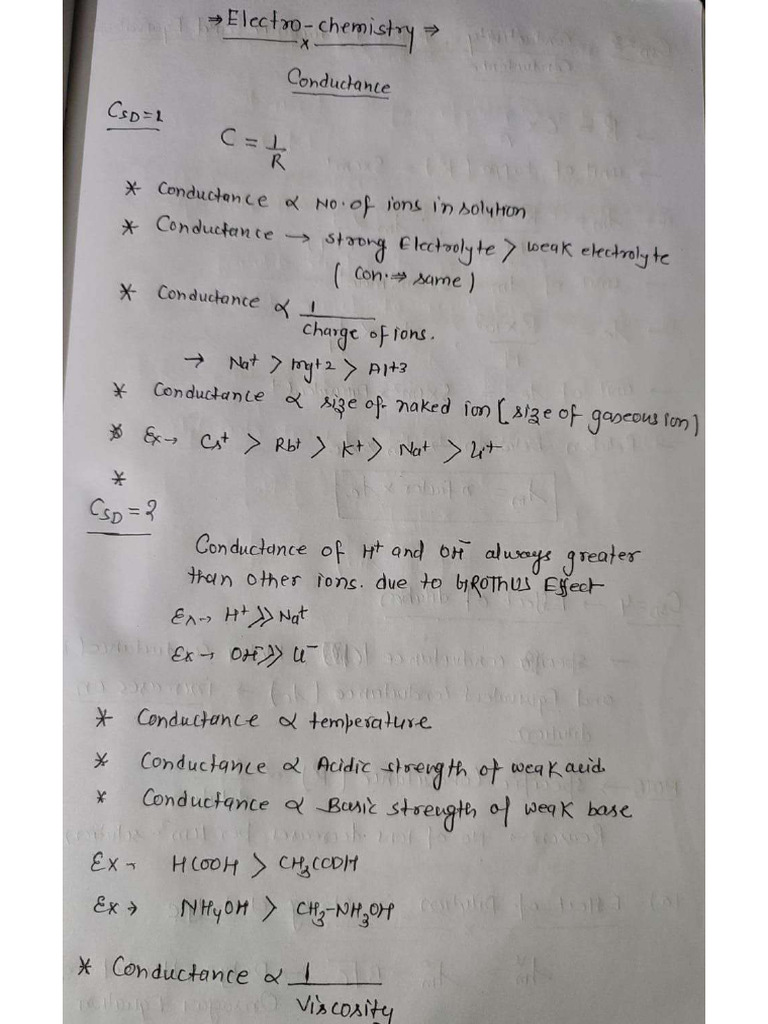 ⇒ Electro-chemistry ⇒
x
Conductance
CSD=1
C = 1/R
* Conductance ∝ No. of ions in solution
* Conductance → strong Electrolyte > weak electrolyte
( Con. ⇒ same )
* Conductance ∝ 1 / charge of ions.
→ Na+ > mg+2 > Al+3
* Conductance ∝ size of naked ion [size of gaseous ion]
* Ex → Cs+ > Rb+ > K+ > Na+ > Li+
*
CSD = 2
Conductance of H+ and OH- always greater
than other ions. due to GROTHUS Effect
Ex → H+ >> Na+
Ex → OH- >> Cl-
* Conductance ∝ temperature
* Conductance ∝ Acidic strength of weak acid
* Conductance ∝ Basic strength of weak base
Ex → HCOOH > CH3COOH
Ex → NH4OH > CH3-NH3OH
* Conductance ∝ 1 / Viscosity